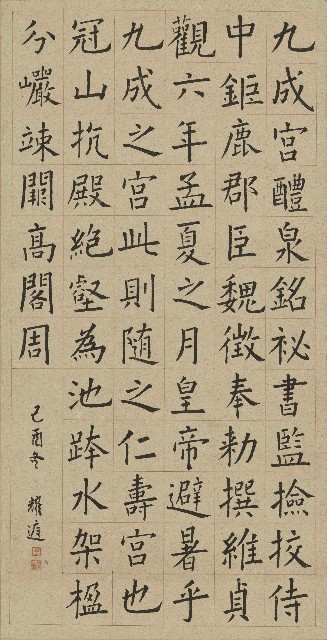 九成宮醴泉銘祕書監撿挍侍
中鉅鹿郡臣魏徵奉勑撰維貞
觀六年孟夏之月皇帝避暑乎
九成之宮此則隨之仁壽宮也
冠山抗殿絕壑為池跨水架楹
分巖竦闕高閣周
己酉冬 耀